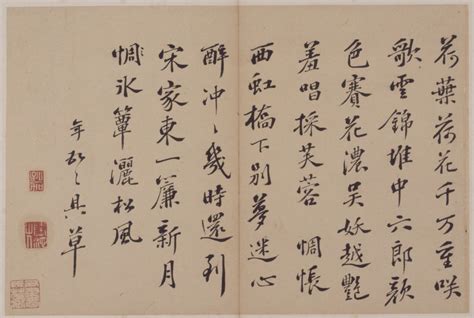 荷葉荷花千万重咲
歌雲錦堆中六郎顔
色賽花濃吴妖越豔
羞唱採芙蓉 惆悵
西虹橋下别夢迷心
醉冲〻幾時還到
宋家東一簾新月
惆氷簟灑松風
年具草